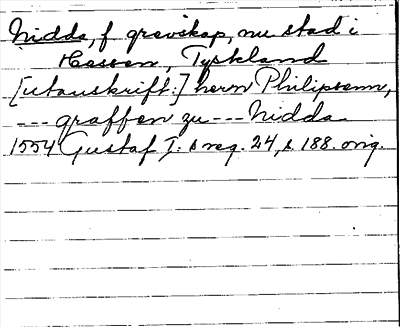 Nidda, f grevskap, nu stad i
Hessen, Tyskland
[utanskrift:] herrn Philipsenn,
--- graffen zu --- Nidda
1554 Gustaf I:s reg. 24, s 188. orig.